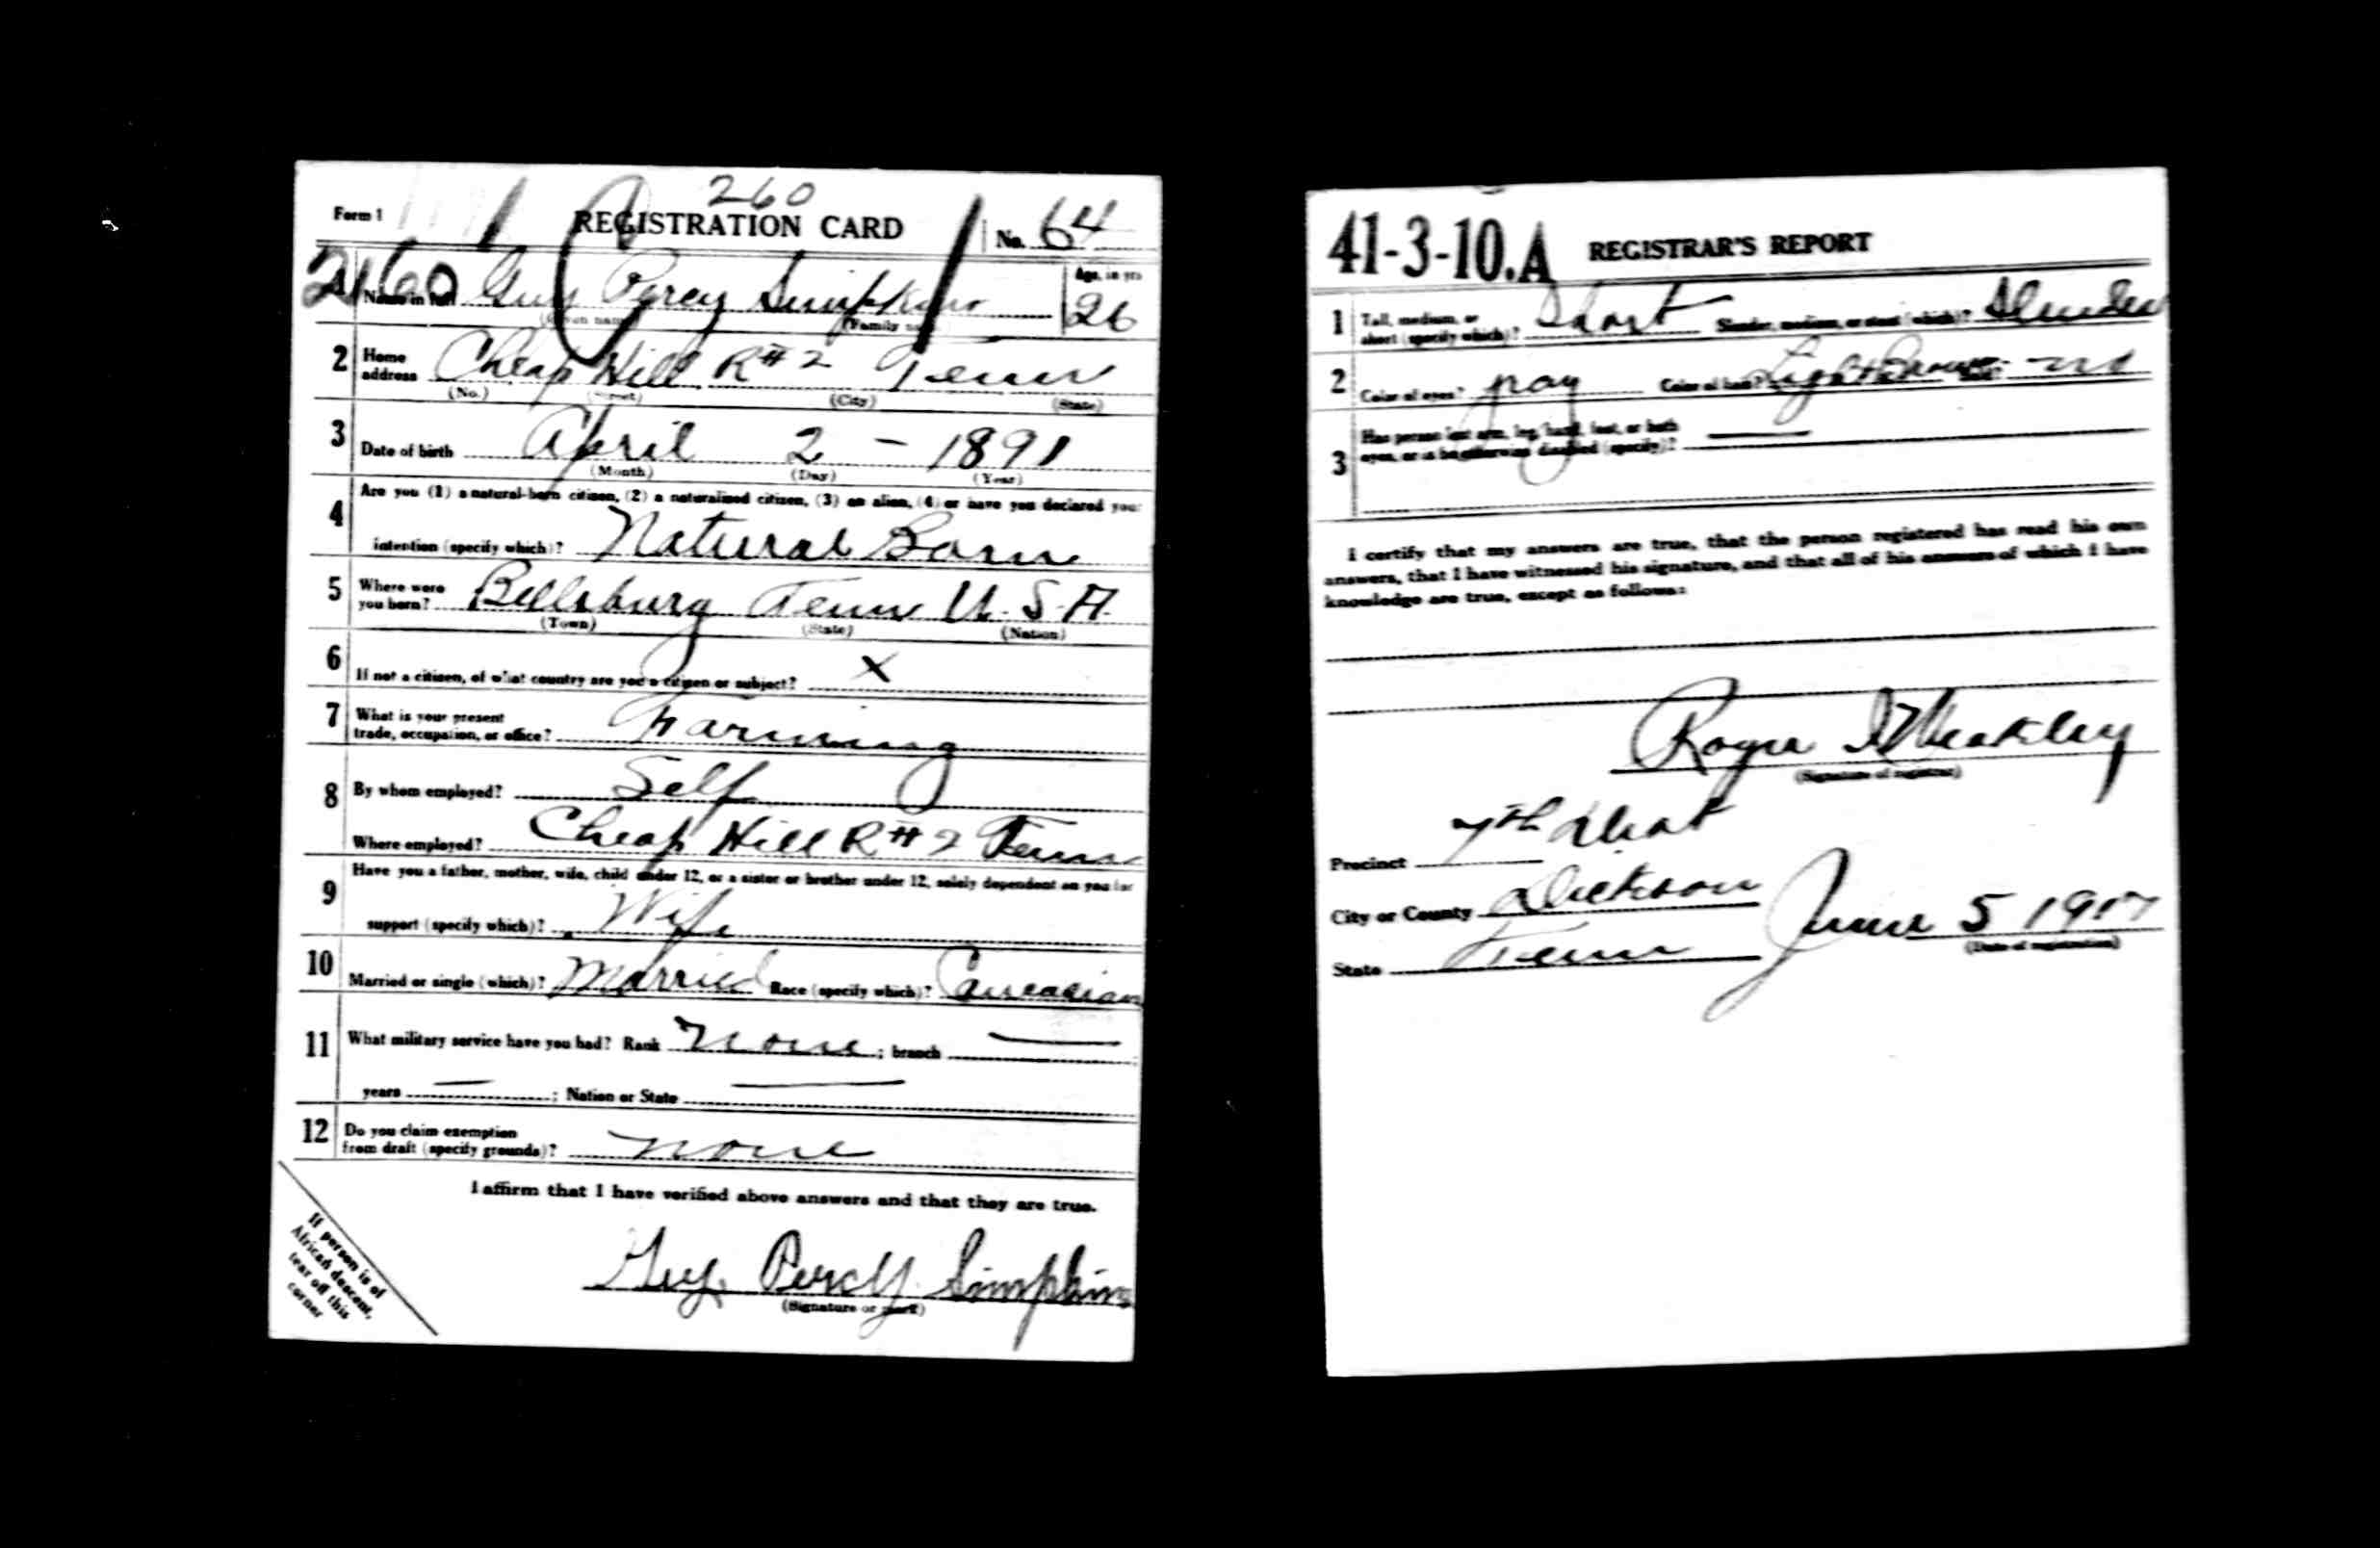 260
Form 1 REGISTRATION CARD No. 64
2160
1 Name in full Guy Percy Simpkins Age, in yrs 26
(Given name) (Family name)
2 Home address Cheap Hill R#2 Tenn
(No.) (Street) (City) (State)
3 Date of birth April 2 - 1891
(Month) (Day) (Year)
4 Are you (1) a natural-born citizen, (2) a naturalized citizen, (3) an alien, (4) or have you declared your
intention (specify which)? Natural Born
5 Where were you born? Bellsburg Tenn U.S.A.
(Town) (State) (Nation)
6 If not a citizen, of what country are you a citizen or subject? X
7 What is your present trade, occupation, or office? Farming
8 By whom employed? Self
Where employed? Cheap Hill R#2 Tenn
9 Have you a father, mother, wife, child under 12, or a sister or brother under 12, solely dependent on you for
support (specify which)? Wife
10 Married or single (which)? Married Race (specify which)? Caucasian
11 What military service have you had? Rank None ; branch —
years — ; Nation or State —
12 Do you claim exemption from draft (specify grounds)? None
I affirm that I have verified above answers and that they are true.
Guy Percy Simpkins
(Signature or mark)
If person is of
African descent,
tear off this
corner
41-3-10.A REGISTRAR'S REPORT
1 Tall, medium, or short (specify which)? Short Slender, medium, or stout (which)? Slender
2 Color of eyes? gray Color of hair? Light Brown Bald? no
3 Has person lost arm, leg, hand, foot, or both
eyes, or is he otherwise disabled (specify)? —
I certify that my answers are true, that the person registered has read his own
answers, that I have witnessed his signature, and that all of his answers of which I have
knowledge are true, except as follows:
Weakley
(Signature of registrar)
Precinct 7th Dist
City or County Dickson June 5 1917
State Tenn (Date of registration)